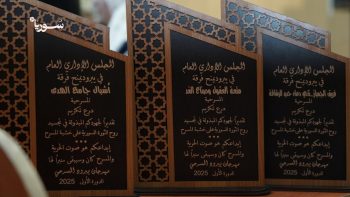 سوريا
المجلس الإداري العام
في بيرودينج فرقة
أشبال جامع الهدى
المسرحية
درع تكريم
تقديراً لجهودكم المبذولة في تجسيد
روح الثورة السورية على خشبة المسرح
إبداعكم هو صوت الحرية
والمسرح كان وسيبقى منبراً لها
مهرجان يبرود المسرحي
الدورة الأولى 2025
المجلس الإداري العام
في بيرودينج فرقة
المسرحية
درع تكريم
تقديراً لجهودكم المبذولة في تجسيد
روح الثورة السورية على خشبة المسرح
إبداعكم هو صوت الحرية
والمسرح كان وسيبقى منبراً لها
مهرجان يبرود المسرحي
الدورة الأولى 2025
المجلس الإداري العام
في بيرودينج فرقة
المسرحية
درع تكريم
تقديراً لجهودكم المبذولة في تجسيد
روح الثورة السورية على خشبة المسرح
إبداعكم هو صوت الحرية
والمسرح كان وسيبقى منبراً لها
مهرجان يبرود المسرحي
الدورة الأولى 2025